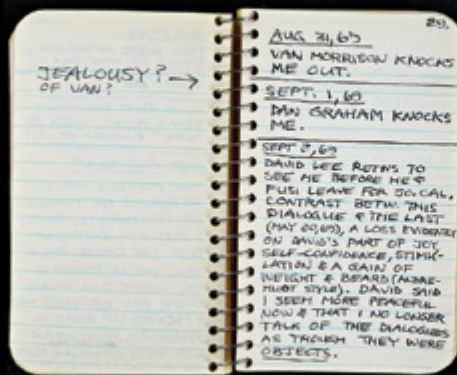 JEALOUSY? →
OF VAN?
AUG 31, 69
VAN MORRISON KNOCKS
ME OUT.
SEPT. 1, 69
DAN GRAHAM KNOCKS
ME.
SEPT 2, 69
DAVID LEE RETNS TO
SEE ME BEFORE HE &
FUSI LEAVE FOR SO. CAL.
CONTRAST BETW. THIS
DIALOGUE & THE LAST
(MAY 20, 69), A LOSS EVIDENTLY
ON DAVID'S PART OF JOY,
SELF-CONFIDENCE, STIMU-
LATION & A GAIN OF
WEIGHT & BEARD
STYLE). DAVID SAID
I SEEM MORE PEACEFUL
NOW & THAT I NO LONGER
TALK OF THE DIALOGUES
AS THOUGH THEY WERE
OBJECTS.